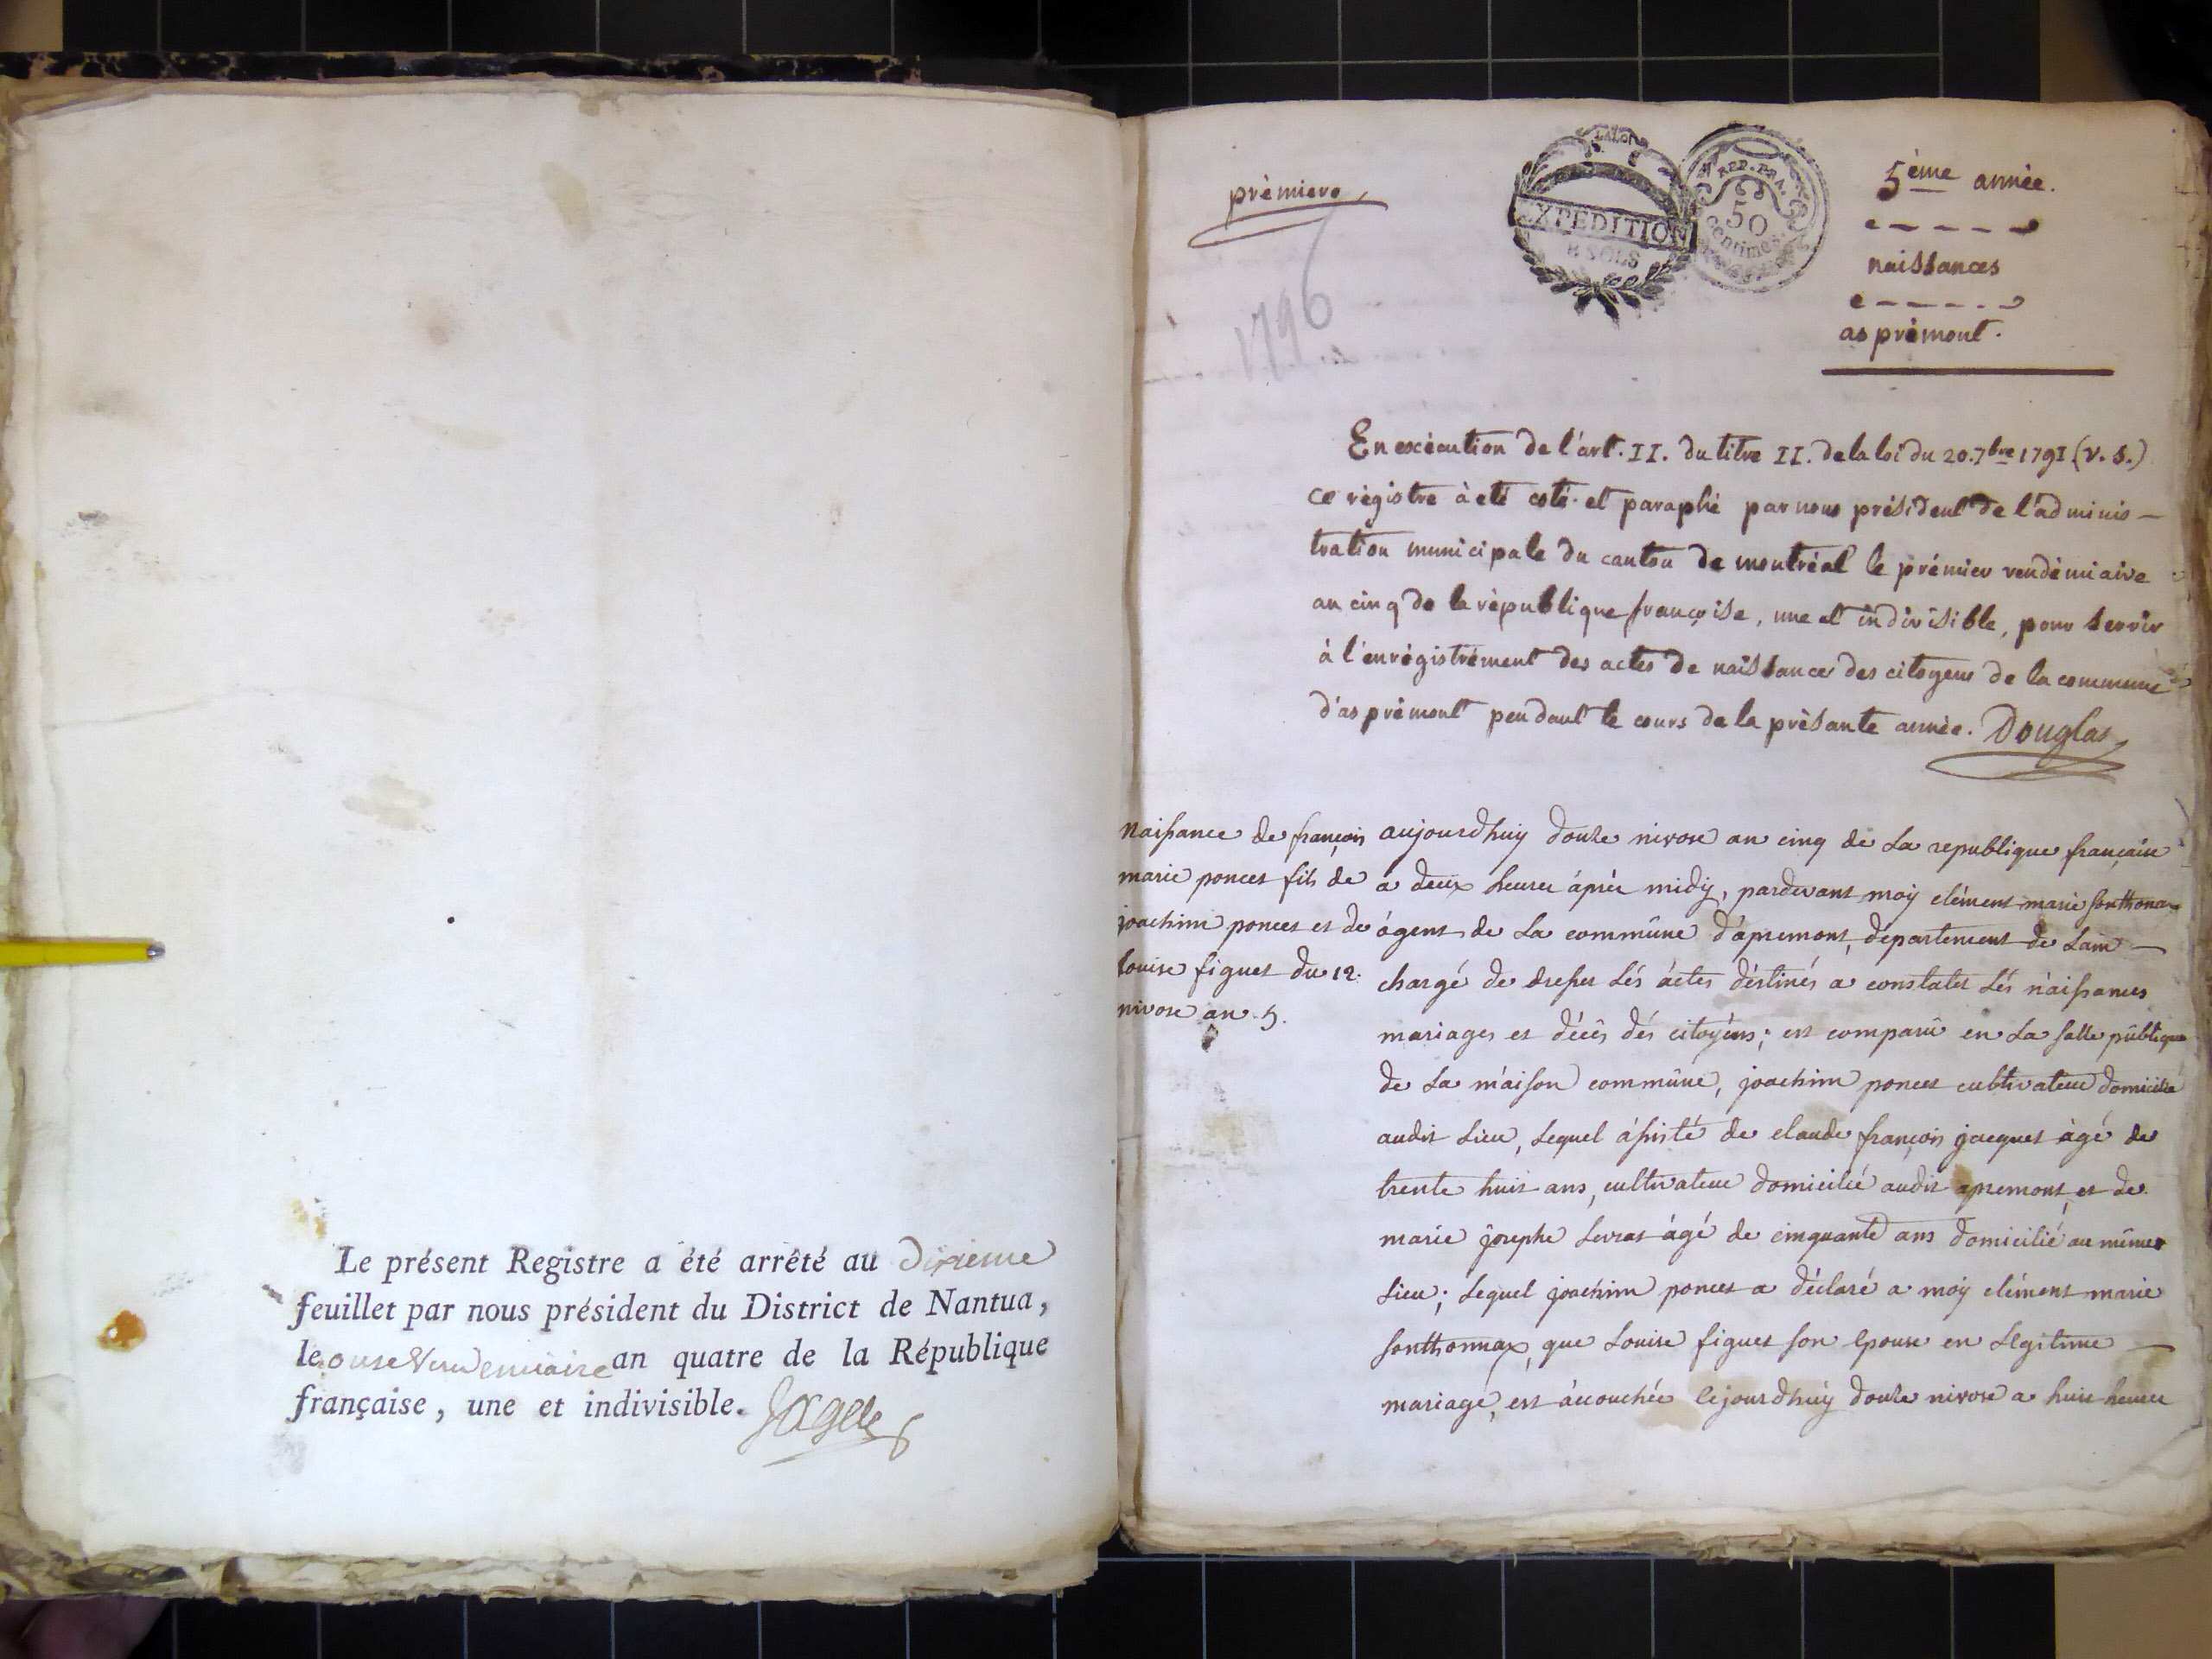 Le présent Registre a été arrêté au dixieme
feuillet par nous président du District de Nantua,
le onse Vendemiaire an quatre de la République
française, une et indivisible.
prèmiere
1796
LA LOI
EXPEDITION
8 SOLS
REP. FRA.
50
centimes
5ème année.
naissances
asprèmont.
En exécution de l'art. II. du titre II. de la loi du 20. 7bre 1791 (v. s.)
ce règistre à eté coté et paraphé par nous président de l'adminis-
tration municipale du canton de montréal le prémier vendémiaire
an cinq de la république françoise, une et indivisible, pour servir
à l'enrégistrément des actes de naissances des citoyens de la commune
d'asprèmont pendant le cours de la présante année. Douglas
Naissance de françois
marie poncet fils de
joachim poncet et de
Louise figuet du 12.
nivose an 5.
aujourdhuy douze nivose an cinq de La republique française
a deux heures áprés midÿ, pardevant moÿ clément marie sonthonax
ágent de La commûne d'ápremont, département de Lain
chargé de dresser Lés áctes déstinés a constater Lés náissances
mariages et décês dés citoÿéns; est comparû en La salle pûblique
de La máison commûne, joachim poncet cultivateur domicilié
audit Lieu, Lequel ássisté de claude françois jacquet àgé de
trente huit ans, cultivateur domicilié audit apremont, et de
marie josephe Levrat àgé de cinquante ans domicilié au même
Lieu; Lequel joachim poncet a déclaré a moÿ clément marie
sonthonnax, que Louise figuet son epouse en Légitime
mariagé, est áccouchée cejourdhuÿ douze nivose a huit heures